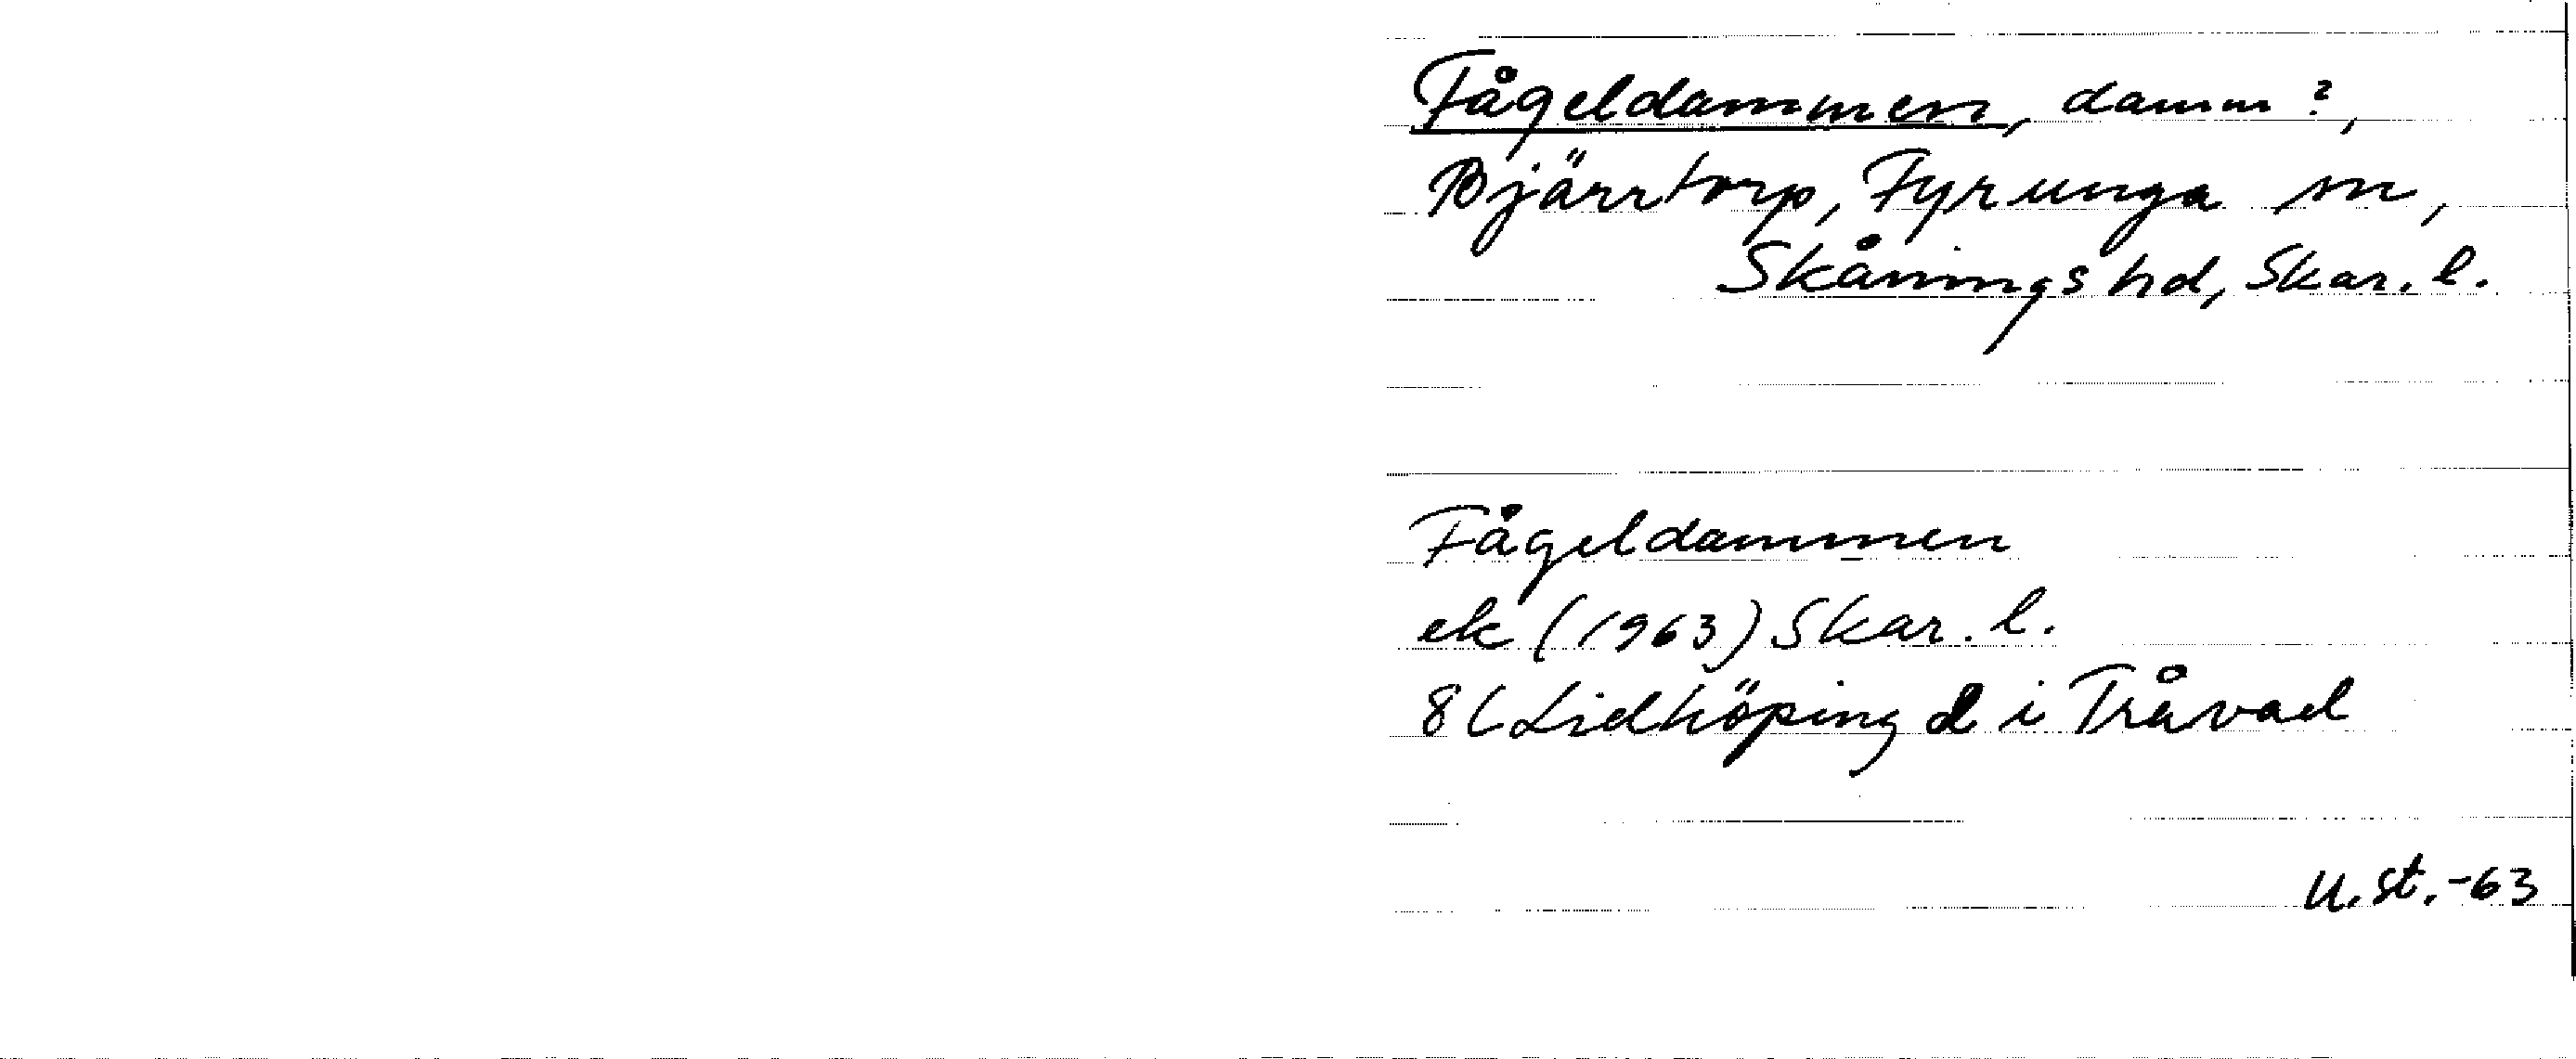 Fågeldammen, damm?,
Bjärrtorp, Fyrunga sn,
Skånings hd, Skar. l.
Fågeldammen
ek (1963) Skar. l.
8C Lidköping d i Tråvad
U.st.-63